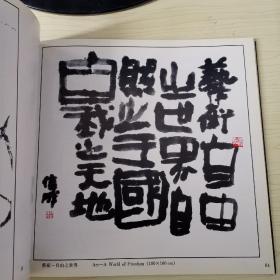 藝術自由
之世界自
然之王國
自我之天地
藝術—自由之世界 Art—A World of Freedom (180×180 cm)